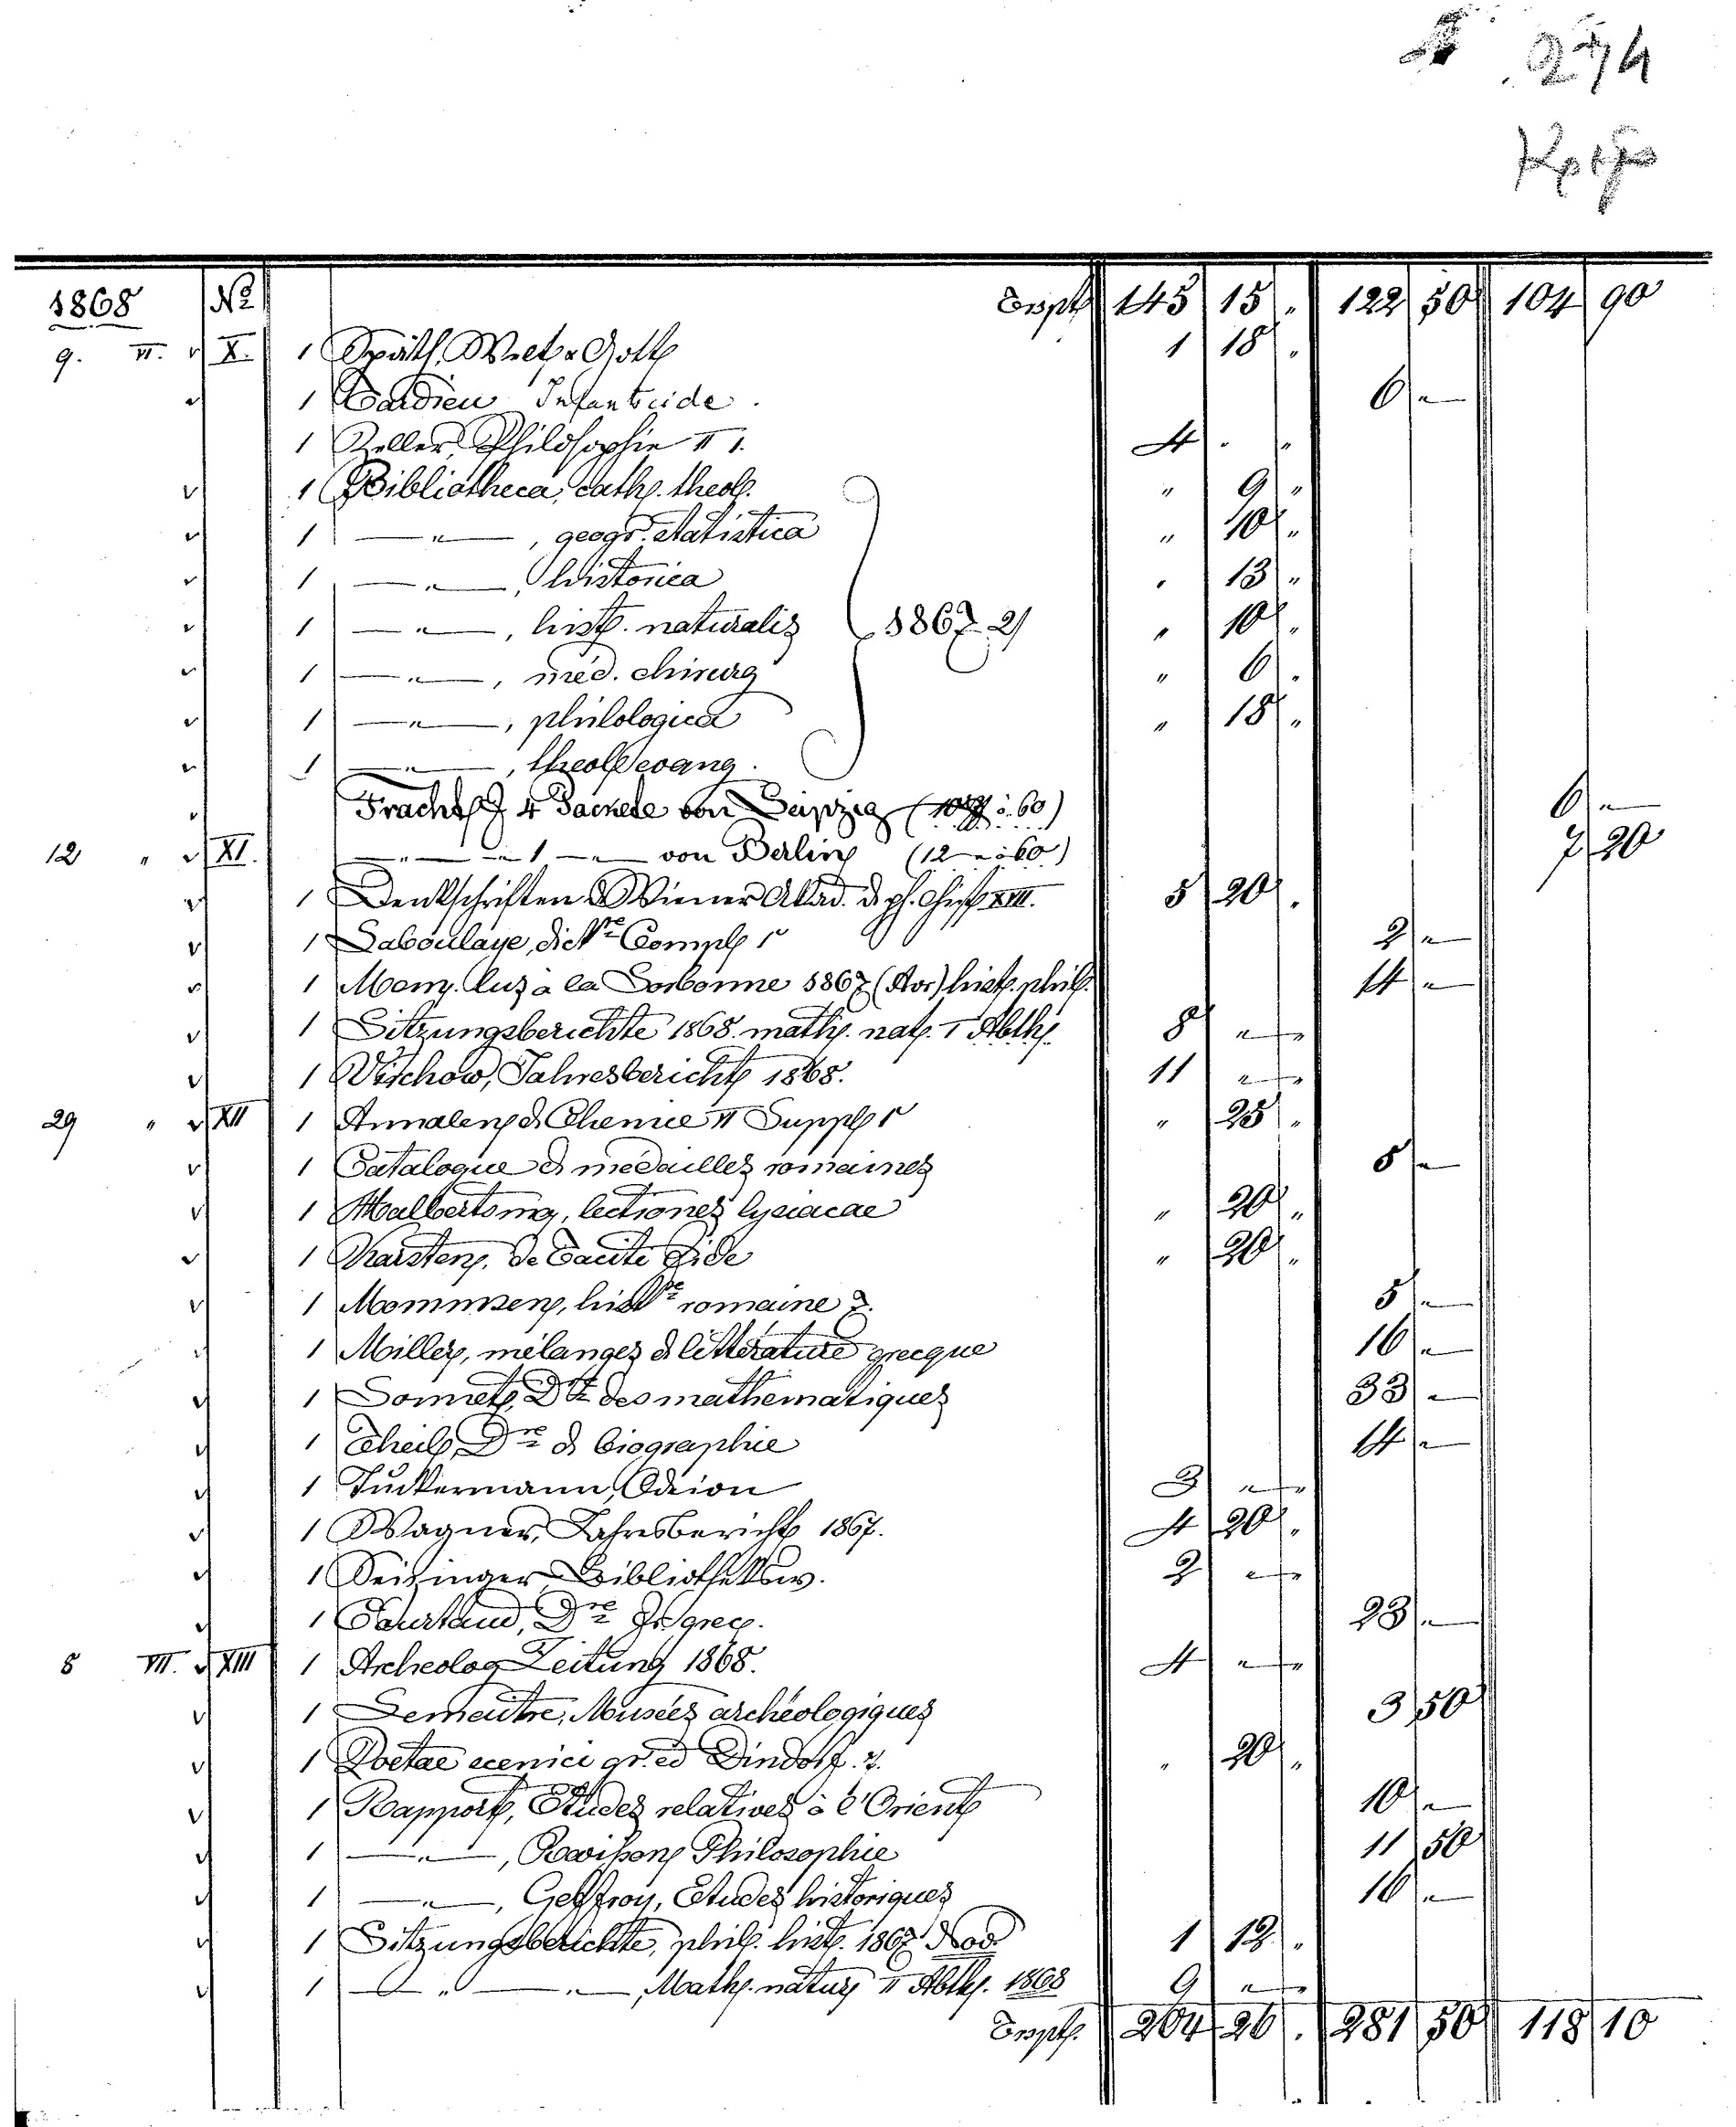 274
1868 No Trspt 145 15 . 122 50 104 90
9. VI. v X. 1 Späth, Welt u Gott 1 18 .
v 1 Tardieu Infanticide . 6 „ —
1 Zeller, Philosophie II 1. 4 . „
v 1 Bibliotheca, cath. theol. „ 9 „
v 1 — „ —, geogr. statistica „ 10 „
v 1 — „ —, historica „ 13 „
v 1 — „ —, hist. naturalis 1867 2) „ 10 „
v 1 — „ —, med. chirurg „ 6 .
v 1 — „ —, philologica „ 18 „
v 1 — „ —, theol. evang.
v Fracht f 4 Packete von Leipzig (à 60) 6 „ —
12 „ v XI. — „ — „ 1 — „ — von Berlin (12 „ à 60) 7 20
v 1 Denkschriften d Wiener Akad. d. ph. hist XIII. 5 20 .
v 1 Laboulaye, dictre Compl 1r 2 „ —
v 1 Mem. lus à la Sorbonne 1867 hist. phil. 4 „ —
v 1 Sitzungsberichte 1868. math. nat. I Abth. 8 „ „
v 1 Virchow, Jahresbericht 1868. 11 „ „
29 „ v XII 1 Annalen d. Chemie II Suppl 1r „ 25 .
v 1 Catalogue d médailles romaines 5 „ —
v 1 Halbertsma, lectiones lysiacae „ 20 „
v 1 Karsten, de Taciti fide „ 20 .
v 1 Mommsen, histre romaine 7. 5 „ —
1 Miller, mélanges d littérature grecque 16 „ —
v 1 Sonnet, Dre des mathematiques 33 „ —
v 1 Theil, Dre d biographie 4 „ —
v 1 Tuckermann, Odeion 3 „ „
v 1 Wagner, Jahresbericht 1867. 4 20 .
v 1 Seizinger Bibliotheksw. 2 „ „
v 1 Courtaud, Dre fr grec. 23 „ —
5 VII. v XIII 1 Archeolog Zeitung 1868. 4 „ „
v 1 Lemaitre, Musées archéologiques 3 50
v 1 Poetae scenici gr. ed Dindorf. 7. „ 20 „
v 1 Rapport, Etudes relatives à l'Orient 10 „ —
v 1 — „ —, Philosophie 11 50
v 1 — „ —, Geffroy, Etudes historiques 10 „ —
v 1 Sitzungsberichte, phil. hist. 1867 Nov 1 12 .
v 1 — „ — „ —, Math. natur II Abth. 1868 9 „ „
Trspt. 204 26 . 281 50 118 10